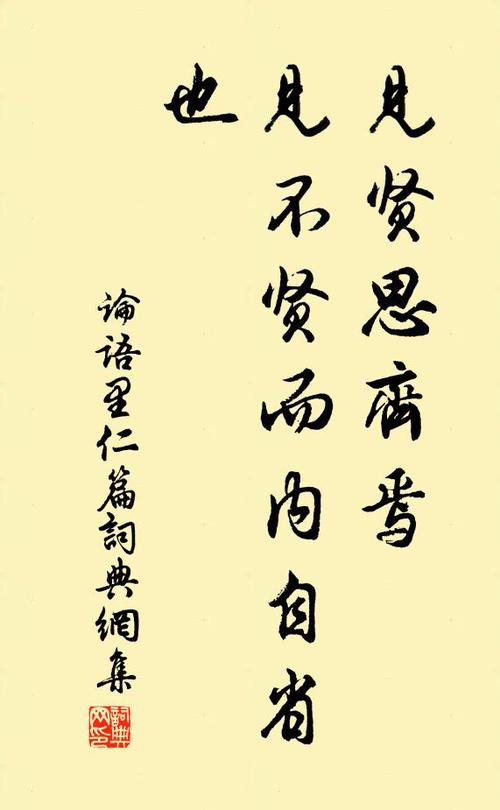 见贤思齊焉
见不贤而内自省
也
论语里仁篇詞典網集
詞典
网印